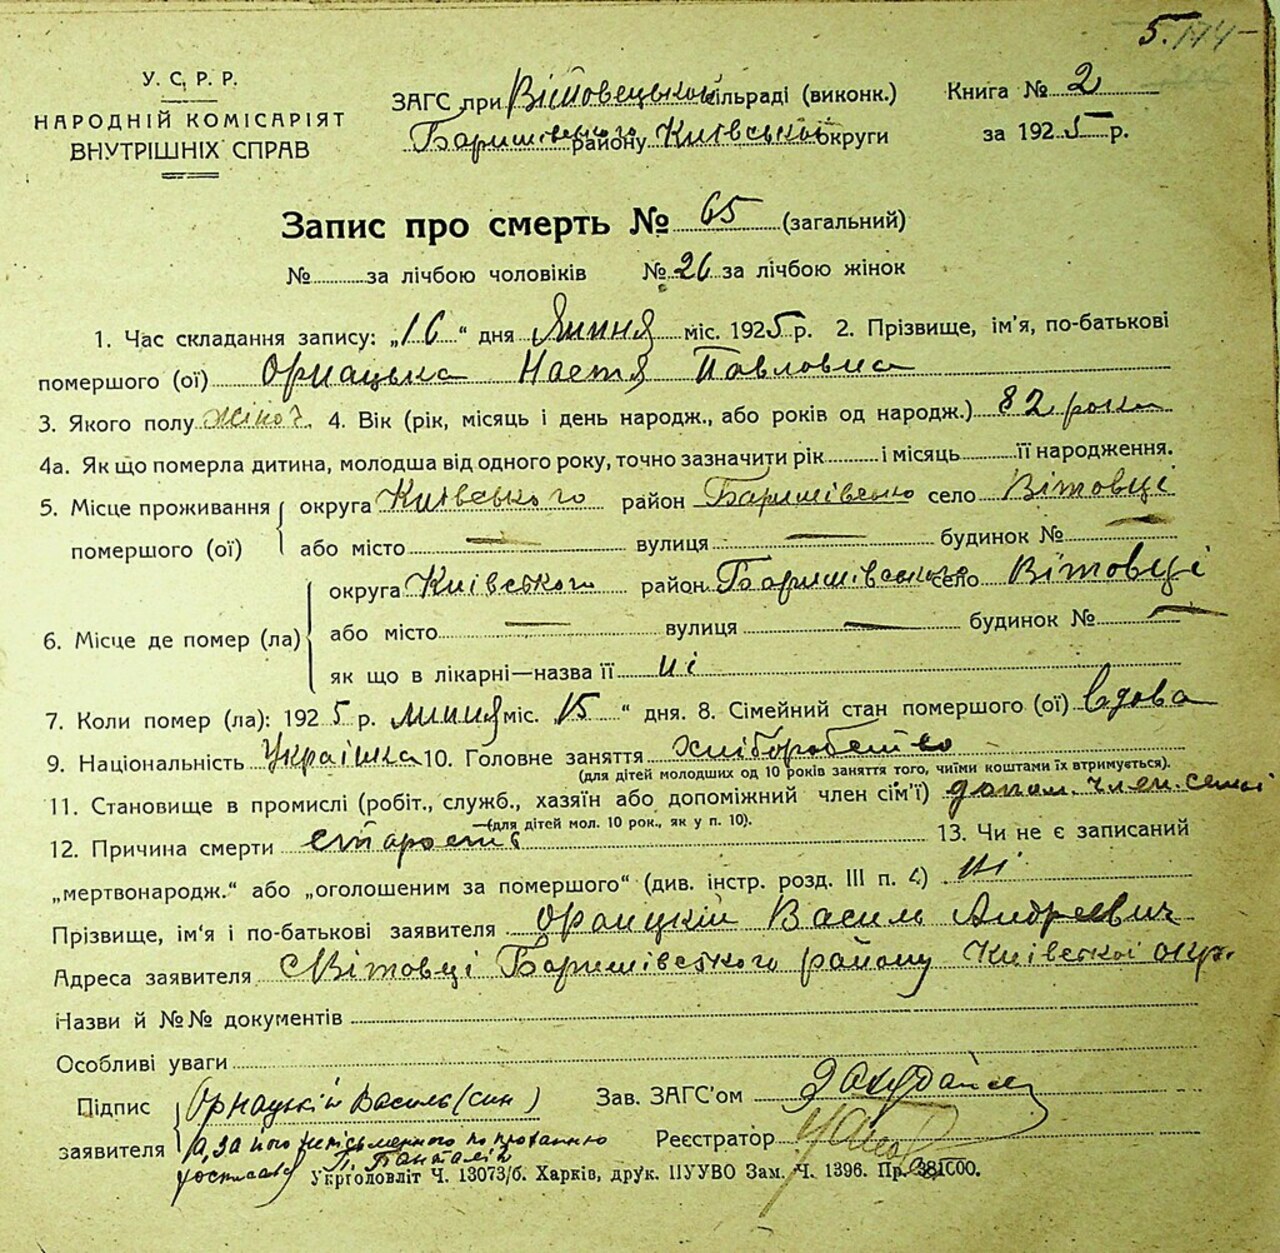 5. 144
У. С. Р. Р.
НАРОДНІЙ КОМІСАРІЯТ
ВНУТРІШНІХ СПРАВ
ЗАГС при Вітовецькой сільраді (виконк.)
Баришівського району Київськой округи
Книга № 2
за 1925 р.
Запис про смерть № 65 (загальний)
№ за лічбою чоловіків № 26 за лічбою жінок
1. Час складання запису: „16“ дня Липня міс. 1925 р. 2. Прізвище, ім'я, по-батькові
помершого (ої) Орнацька Настя Павловна
3. Якого полу жіноч. 4. Вік (рік, місяць і день народж., або років од народж.) 82 роки
4а. Як що померла дитина, молодша від одного року, точно зазначити рік і місяць її народження.
5. Місце проживання помершого (ої) округа Київського район Баришівсько село Вітовці
або місто — вулиця — будинок № —
6. Місце де помер (ла) округа Київсткого район Баришівського село Вітовці
або місто — вулиця — будинок № —
як що в лікарні—назва її ні
7. Коли помер (ла): 1925 р. липня міс. 15“ дня. 8. Сімейний стан помершого (ої) вдова
9. Національність Українка 10. Головне заняття хліборобство
(для дітей молодших од 10 років заняття того, чиїми коштами їх втримується).
11. Становище в промислі (робіт., служб., хазяїн або допоміжний член сім'ї) допом. член. семьі
—(для дітей мол. 10 рок., як у п. 10).
12. Причина смерти старость 13. Чи не є записаний
„мертвонародж.“ або „оголошеним за помершого“ (див. інстр. розд. III п. 4) ні
Прізвище, ім'я і по-батькові заявителя Орнацкій Василь Андреевич
Адреса заявителя с Вітовці Баришівсткого району Київсткоі окр.
Назви й №№ документів
Особливі уваги
Підпис заявителя Орнацкій Василь (син)
а, за його неписьменного по проханню
П. Панталій
Зав. ЗАГС'ом
Реєстратор
Укрголовліт Ч. 13073/б. Харків, друк. ПУУВО Зам. Ч. 1396. Пр.